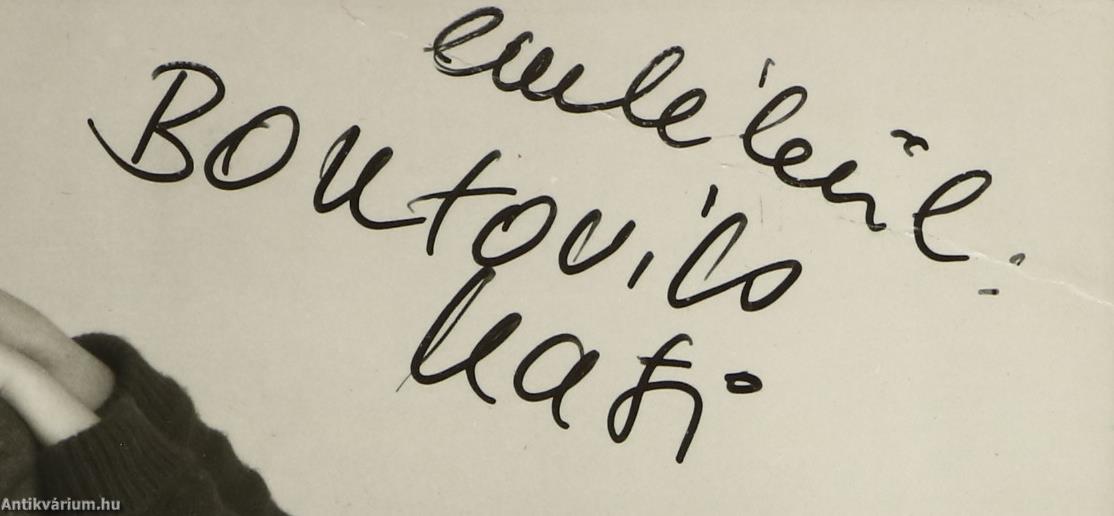 emlékül:
Bontovics
Kati
Antikvárium.hu